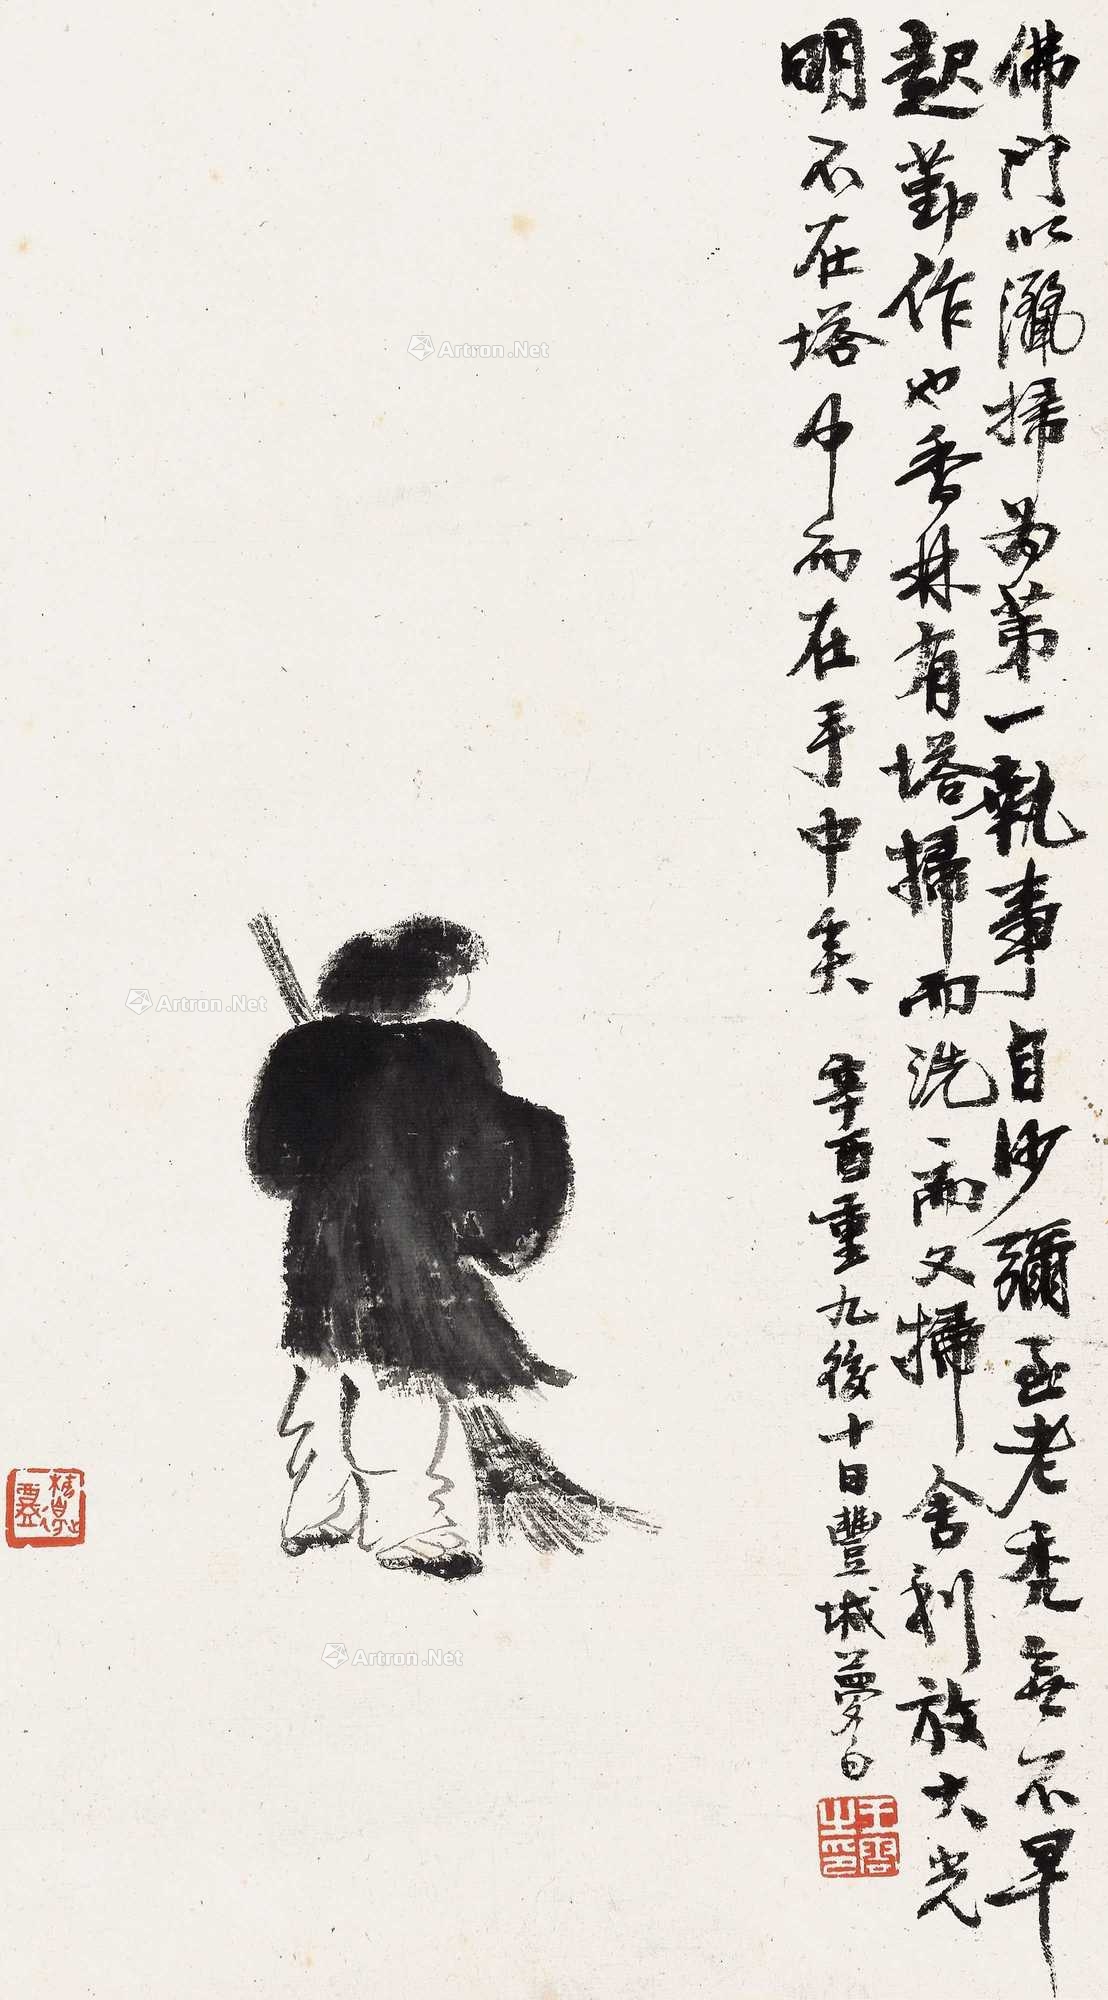 佛門以灑掃為第一執事自沙彌至老禿無不早
起勤作也香林有塔掃而洗洗而又掃舍利放大光
明不在塔中而在手中矣
辛酉重九後十日豐城夢白
王雲之印
Artron.Net
Artron.Net
Artron.Net